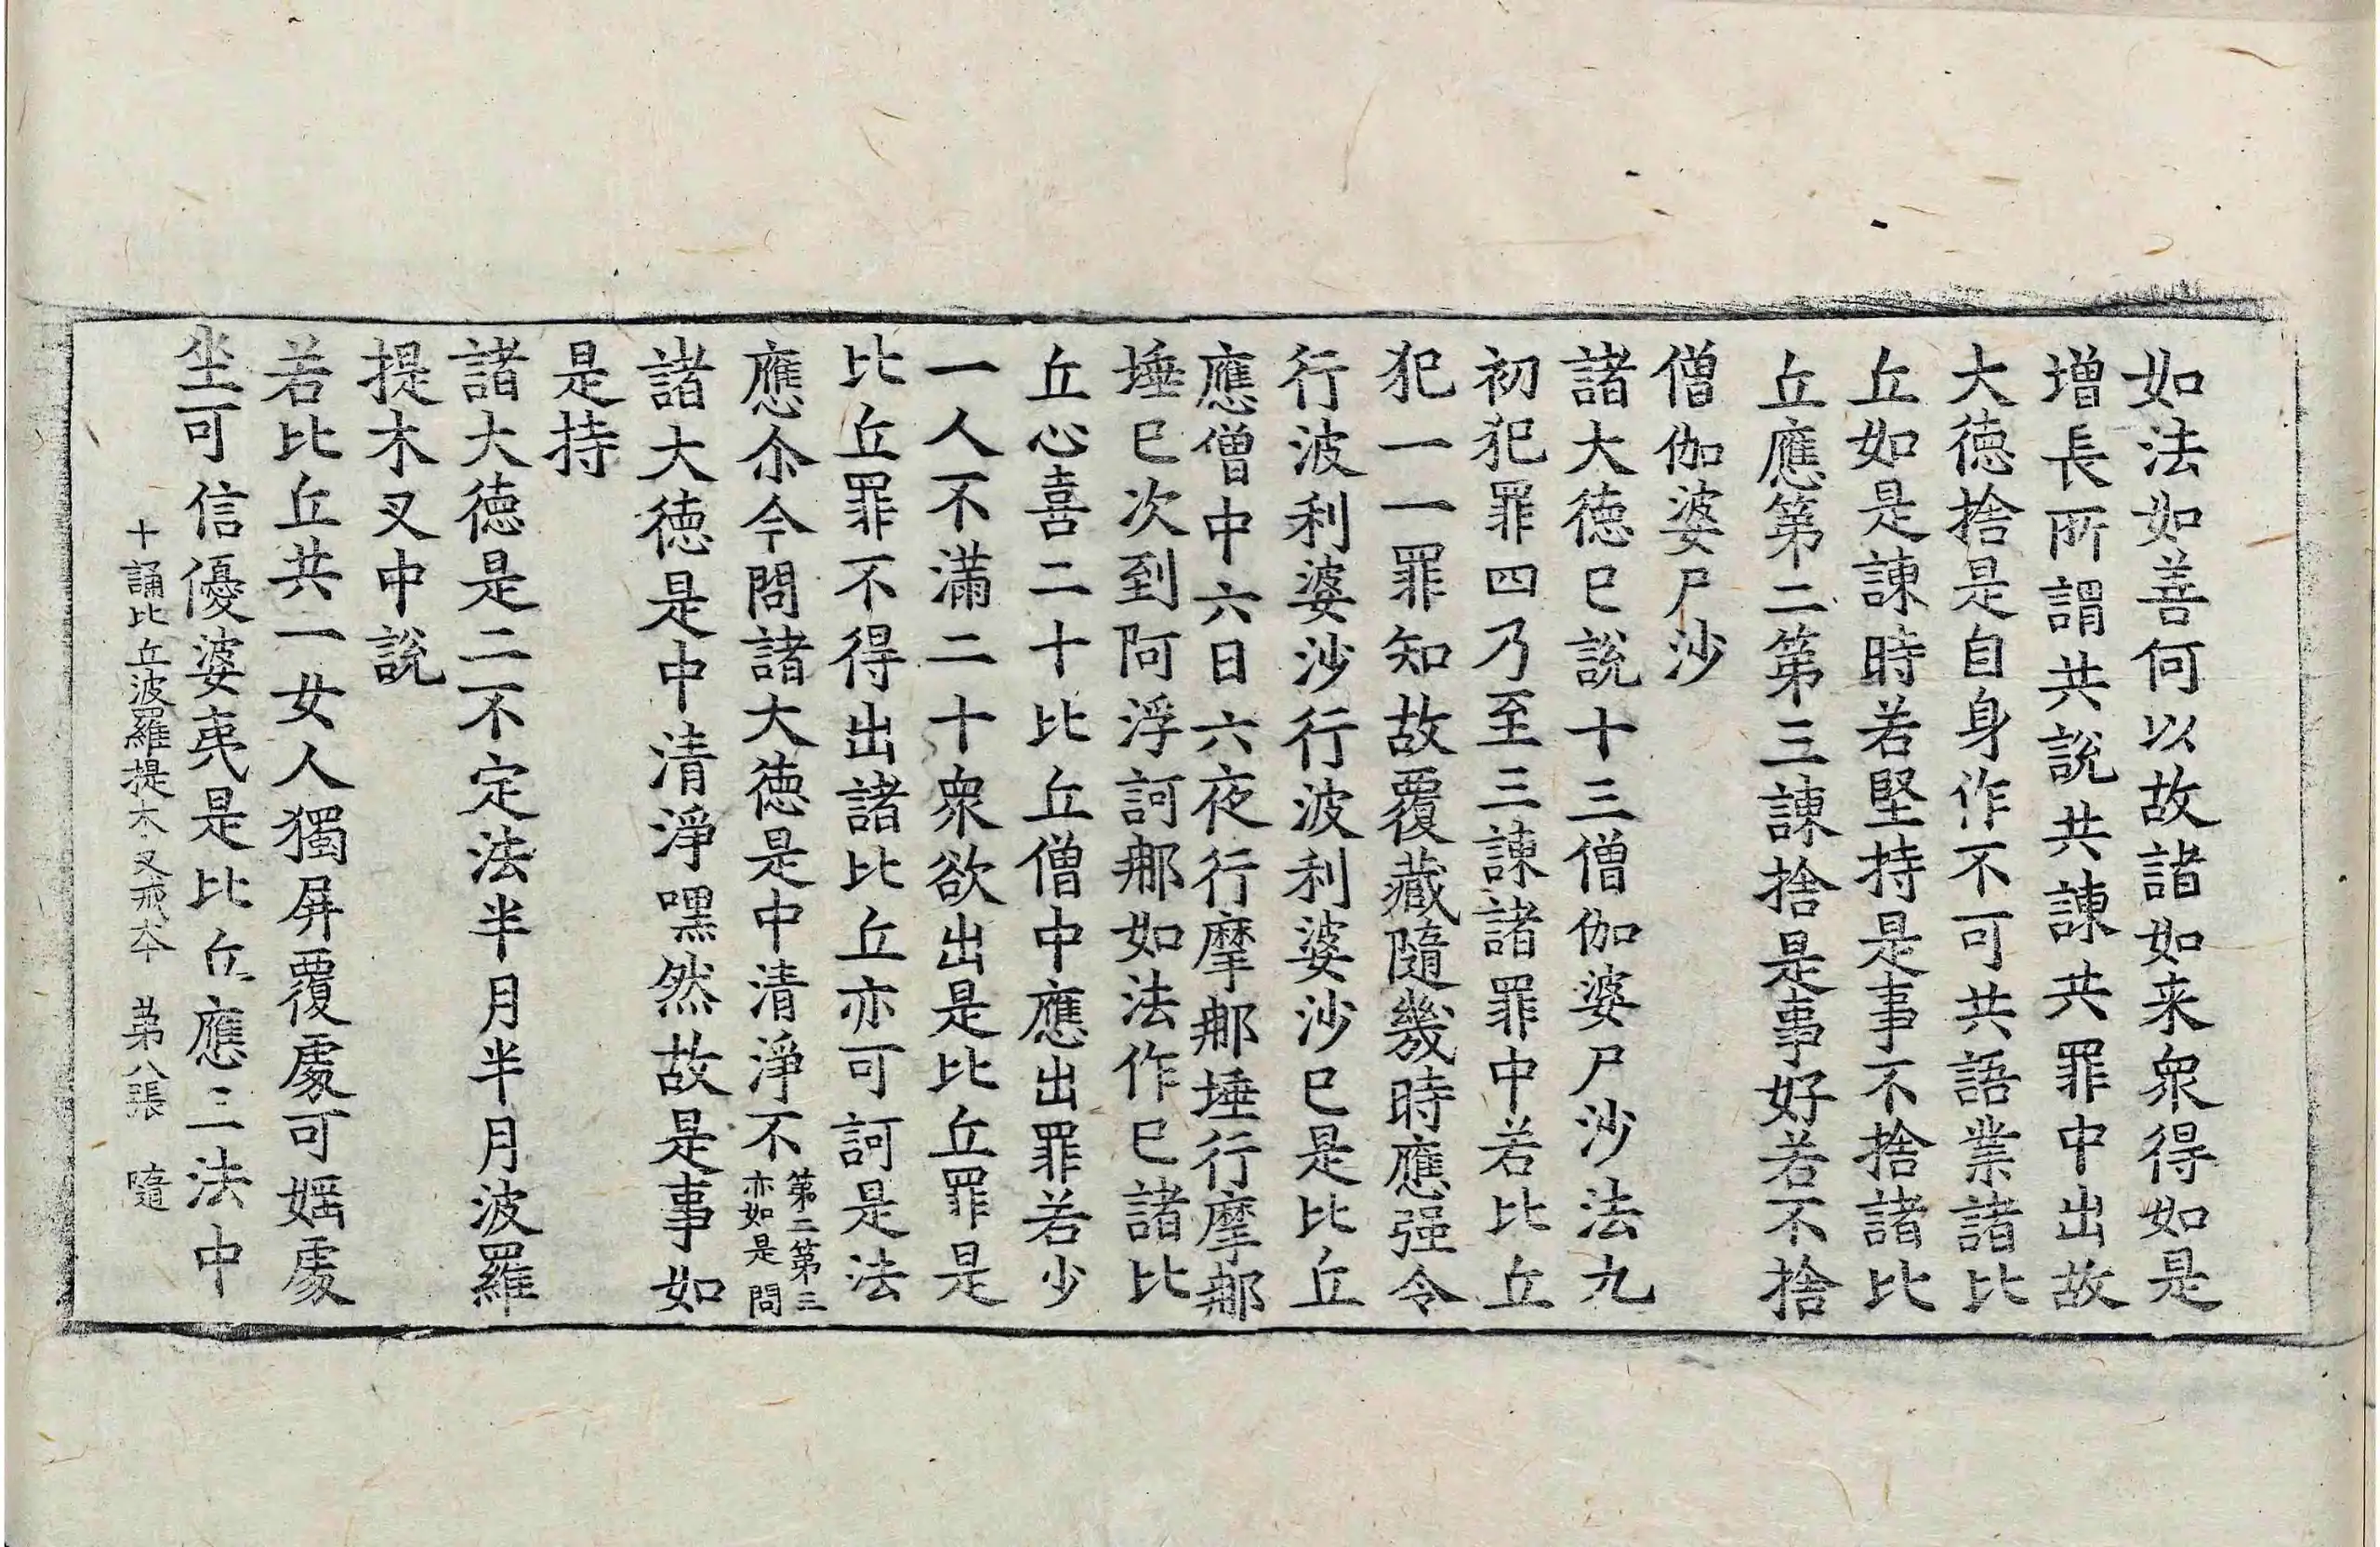 如法如善何以故諸如来衆得如是
增長所謂共說共諫共罪中出故
大德捨是自身作不可共語業諸比
丘如是諫時若堅持是事不捨諸比
丘應第二第三諫捨是事好若不捨
僧伽婆尸沙
諸大德已說十三僧伽婆尸沙法九
初犯罪四乃至三諫諸罪中若比丘
犯一一罪知故覆藏隨幾時應强令
行波利婆沙行波利婆沙已是比丘
應僧中六日六夜行摩那埵行摩那
埵已次到阿浮訶那如法作已諸比
丘心喜二十比丘僧中應出罪若少
一人不滿二十衆欲出是比丘罪是
比丘罪不得出諸比丘亦可訶是法
應尒今問諸大德是中清淨不第二第三亦如是問
諸大德是中清淨嘿然故是事如
是持
諸大德是二不定法半月半月波羅
提木叉中說
若比丘共一女人獨屏覆處可婬處
坐可信優婆夷是比丘應三法中
十誦比丘波羅提木叉戒本　第八張　隨